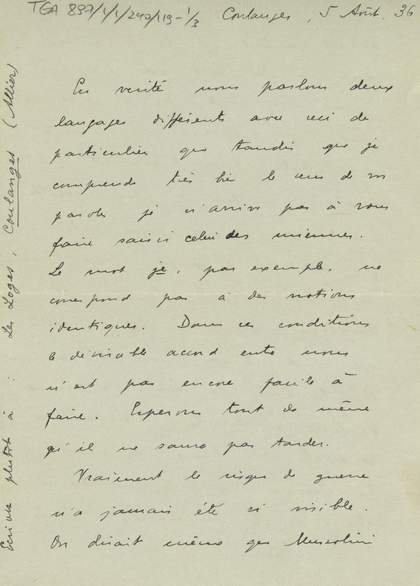 TGA 897/1/1/240/119-1/3
Coulanges, 5 Août. 36
En vérité nous parlons deux
langages différents avec ceci de
particulier que tandis que je
comprends très bien le sens de vos
paroles je n'arrive pas à vous
faire saisir celui des miennes.
Le mot je, par exemple, ne
correspond pas à des notions
identiques. Dans ces conditions
le désirable accord entre nous
n'est pas encore facile à
faire. Esperons tout de même
qu'il ne saura pas tarder.
Vraiment le risque de guerre
n'a jamais été si visible.
On dirait même que Mussolini
Ecrivez plutôt à : Les Loges, Coulanges (Allier)